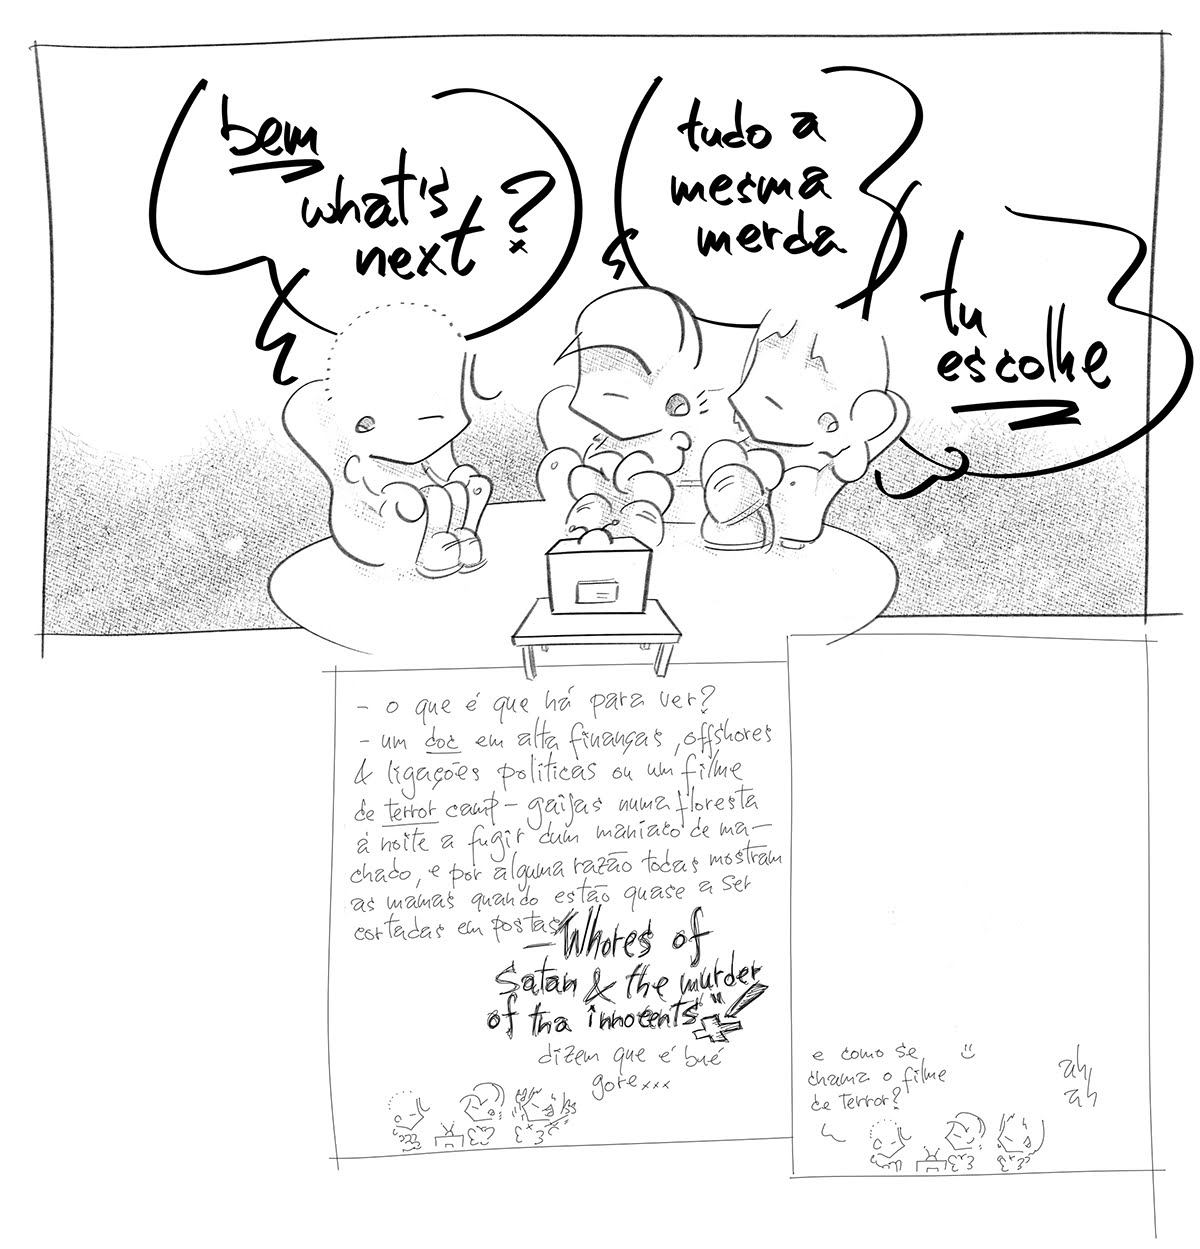 bem
what's
next?
tudo a
mesma
merda
tu
escolhe
- o que é que há para ver?
- um doc em alta finanças, offshores
& ligações políticas ou um filme
de terror camp - gaijas numa floresta
á noite a fugir dum maníaco de ma-
chado, e por alguma razão todas mostram
as mamas quando estão quase a ser
cortadas em postas
- Whores of
Satan & the murder
of tha innocents"
dizem que é bué
gore...
e como se
chama o filme
de terror?
ah,
ah